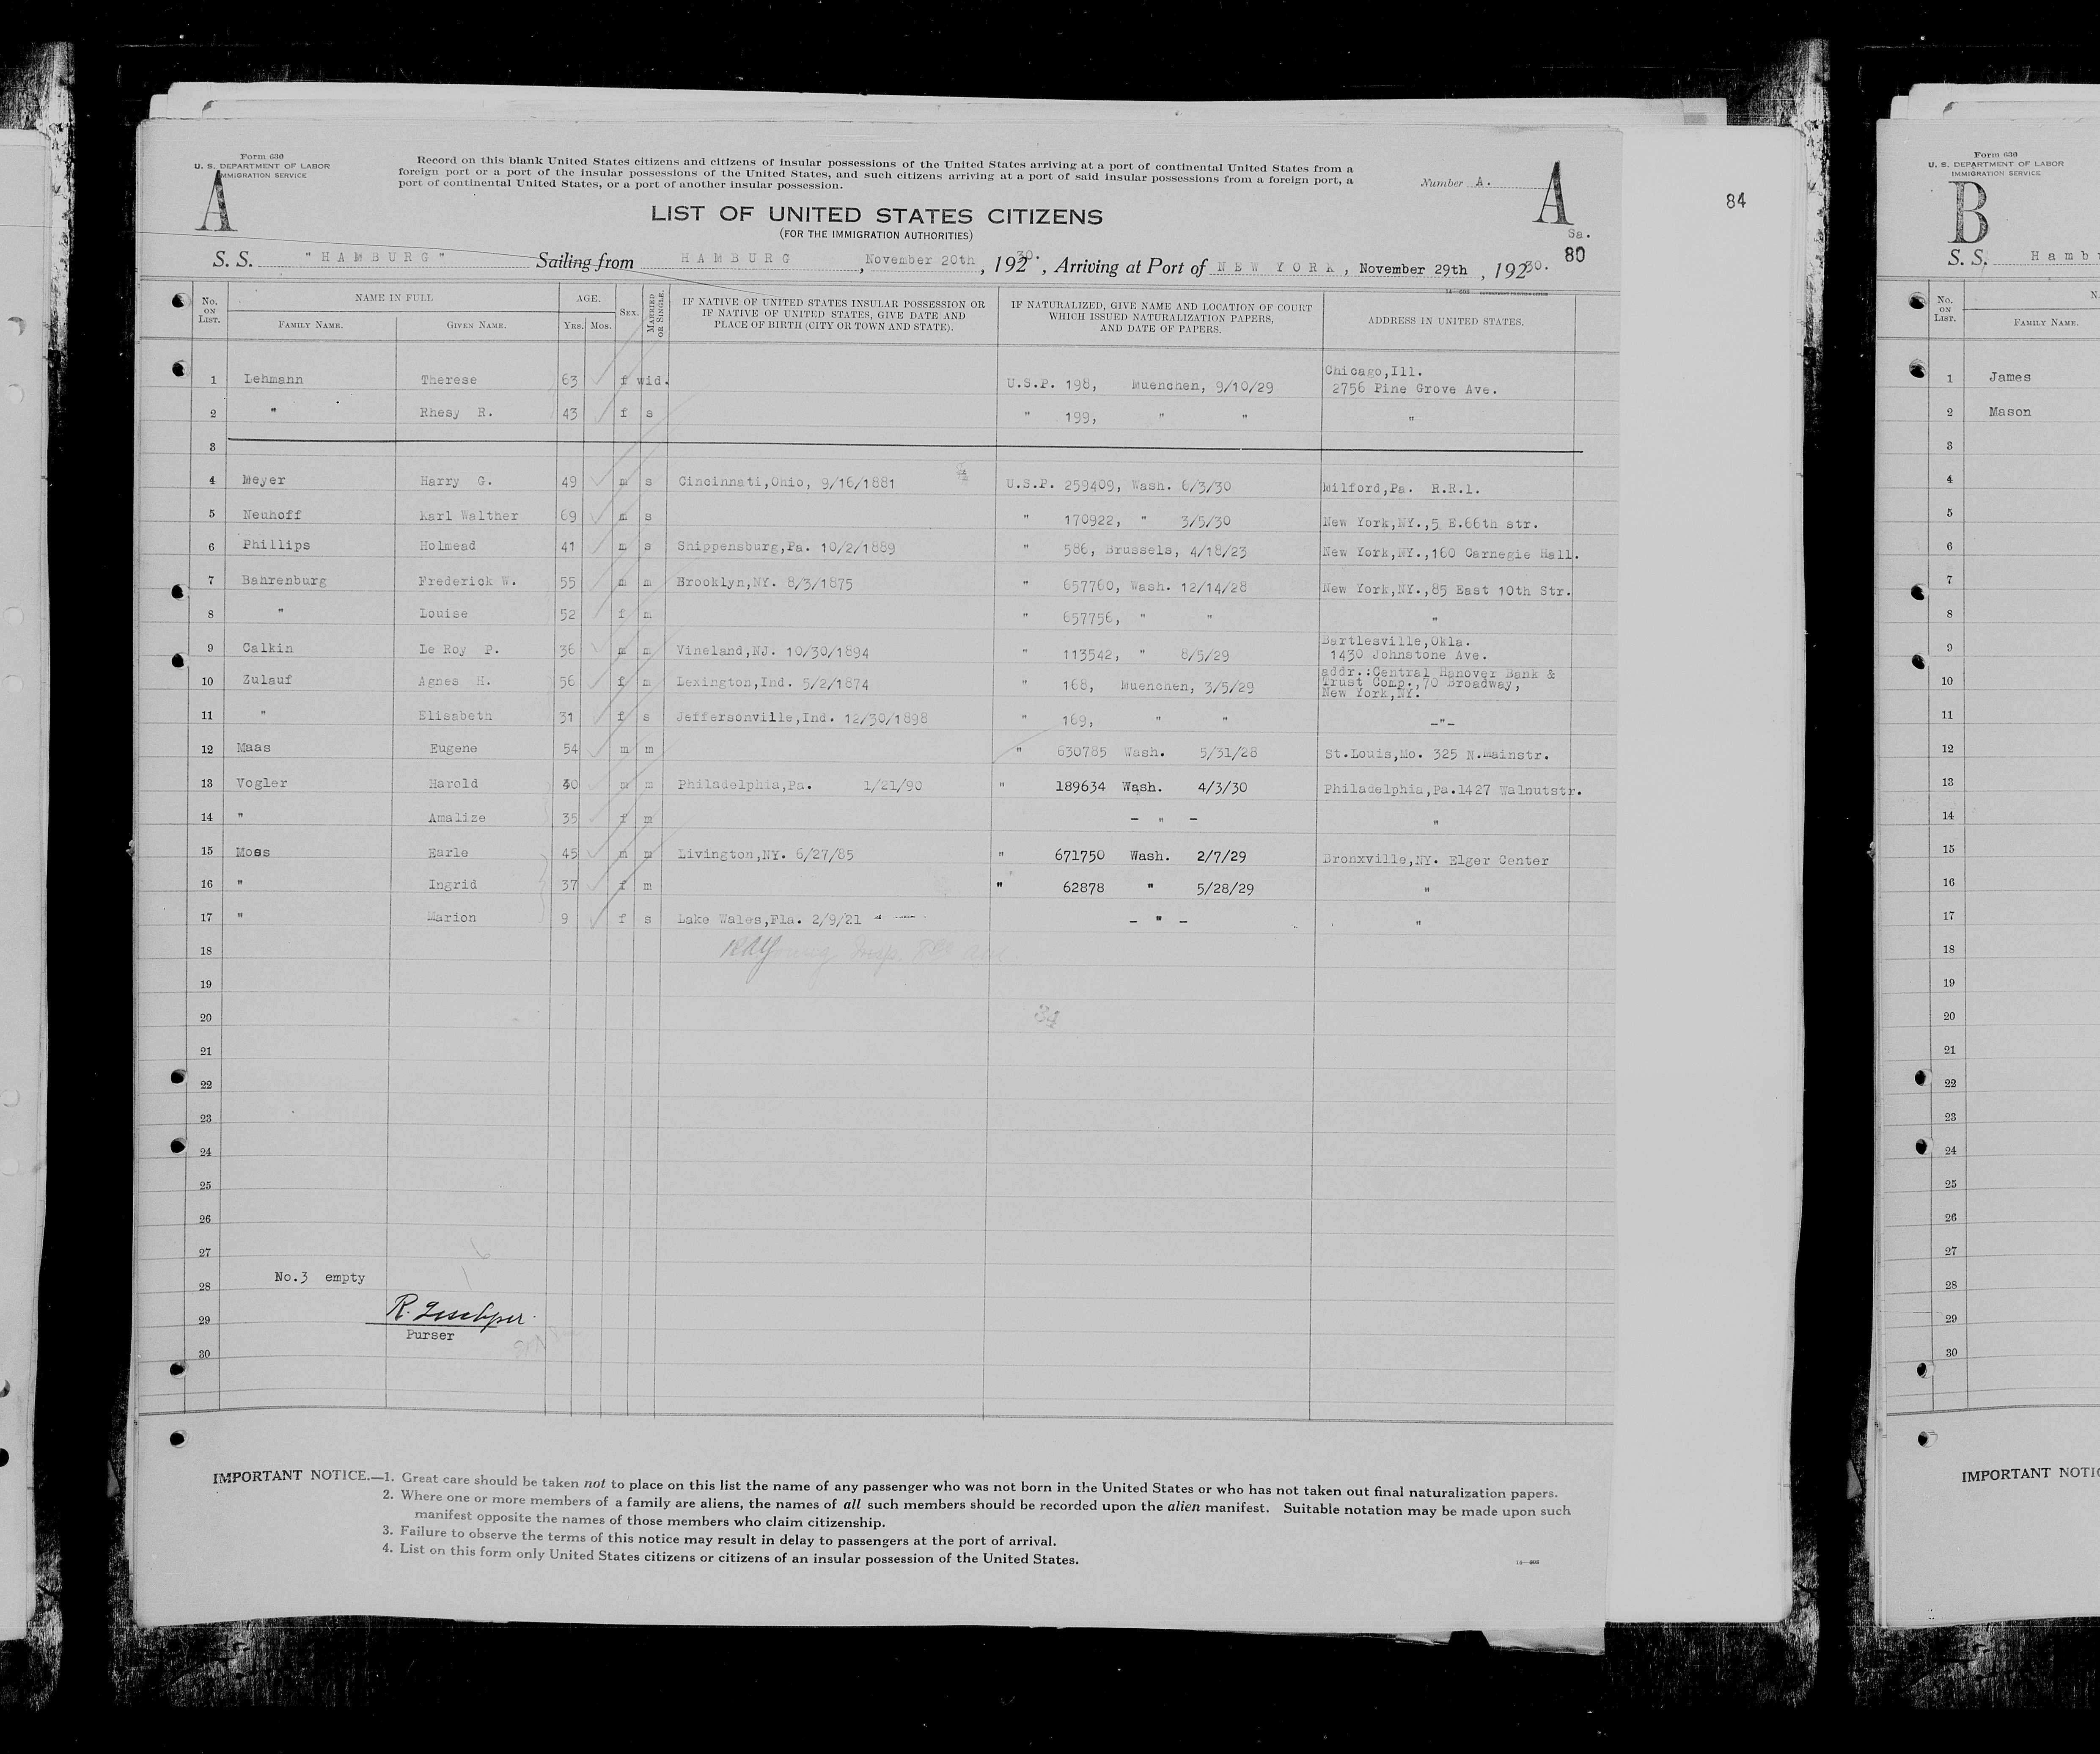 Form 630
U. S. DEPARTMENT OF LABOR
IMMIGRATION SERVICE
A
Record on this blank United States citizens and citizens of insular possessions of the United States arriving at a port of continental United States from a
foreign port or a port of the insular possessions of the United States, and such citizens arriving at a port of said insular possessions from a foreign port, a
port of continental United States, or a port of another insular possession.
Number A.
A
LIST OF UNITED STATES CITIZENS
(FOR THE IMMIGRATION AUTHORITIES)
Sa.
80
84
S. S. "HAMBURG" Sailing from HAMBURG, November 20th, 19230., Arriving at Port of NEW YORK, November 29th, 19230.
No. ON LIST. NAME IN FULL FAMILY NAME. GIVEN NAME. AGE. YRS. MOS. SEX. MARRIED OR SINGLE. IF NATIVE OF UNITED STATES INSULAR POSSESSION OR IF NATIVE OF UNITED STATES, GIVE DATE AND PLACE OF BIRTH (CITY OR TOWN AND STATE). IF NATURALIZED, GIVE NAME AND LOCATION OF COURT WHICH ISSUED NATURALIZATION PAPERS, AND DATE OF PAPERS. ADDRESS IN UNITED STATES.
1 Lehmann Therese 63 f wid. U.S.P. 198, Muenchen, 9/10/29 Chicago,Ill. 2756 Pine Grove Ave.
2 " Rhesy R. 43 f s " 199, " " "
3
4 Meyer Harry G. 49 m s Cincinnati,Ohio, 9/16/1881 U.S.P. 259409, Wash. 6/3/30 Milford,Pa. R.R.1.
5 Neuhoff Karl Walther 69 m s " 170922, " 3/5/30 New York,NY.,5 E.66th str.
6 Phillips Holmead 41 m s Shippensburg,Pa. 10/2/1889 " 586, Brussels, 4/18/23 New York,NY.,160 Carnegie Hall.
7 Bahrenburg Frederick W. 55 m m Brooklyn,NY. 8/3/1875 " 657760, Wash. 12/14/28 New York,NY.,85 East 10th Str.
8 " Louise 52 f m " 657756, " " "
9 Calkin Le Roy P. 36 m m Vineland,NJ. 10/30/1894 " 113542, " 8/5/29 Bartlesville,Okla. 1430 Johnstone Ave.
10 Zulauf Agnes H. 56 f m Lexington,Ind. 5/2/1874 " 168, Muenchen, 3/5/29 addr.:Central Hanover Bank & Trust Comp.,70 Broadway, New York,NY.
11 " Elisabeth 31 f s Jeffersonville,Ind. 12/30/1898 " 169, " " -"-
12 Maas Eugene 54 m m " 630785 Wash. 5/31/28 St.Louis,Mo. 325 N.Mainstr.
13 Vogler Harold 40 m m Philadelphia,Pa. 1/21/90 " 189634 Wash. 4/3/30 Philadelphia,Pa.1427 Walnutstr.
14 " Amalize 35 f m - " - "
15 Moss Earle 45 m m Livington,NY. 6/27/85 " 671750 Wash. 2/7/29 Bronxville,NY. Elger Center
16 " Ingrid 37 f m " 62878 " 5/28/29 "
17 " Marion 9 f s Lake Wales,Fla. 2/9/21 - " - "
18
19
20 34
21
22
23
24
25
26
27
No.3 empty
28
29 R.
Purser
30
IMPORTANT NOTICE.—1. Great care should be taken not to place on this list the name of any passenger who was not born in the United States or who has not taken out final naturalization papers.
2. Where one or more members of a family are aliens, the names of all such members should be recorded upon the alien manifest. Suitable notation may be made upon such
manifest opposite the names of those members who claim citizenship.
3. Failure to observe the terms of this notice may result in delay to passengers at the port of arrival.
4. List on this form only United States citizens or citizens of an insular possession of the United States.
Form 630
U. S. DEPARTMENT OF LABOR
IMMIGRATION SERVICE
B
S. S. Hamb
No. ON LIST.
FAMILY NAME.
1 James
2 Mason
3
4
5
6
7
8
9
10
11
12
13
14
15
16
17
18
19
20
21
22
23
24
25
26
27
28
29
30
IMPORTANT NOTIC